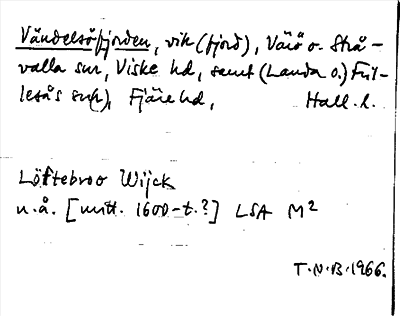 Vändelsöfjorden, vik (fjord), Värö o. Strå-
valla snr, Viske hd, samt (Landa o.) Fril-
lesås sn(r), Fjäre hd, Hall. l.
Löftebroo Wijck
u.å. [mitt. 1600-t.?] LSA M²
T.N.B. 1966.